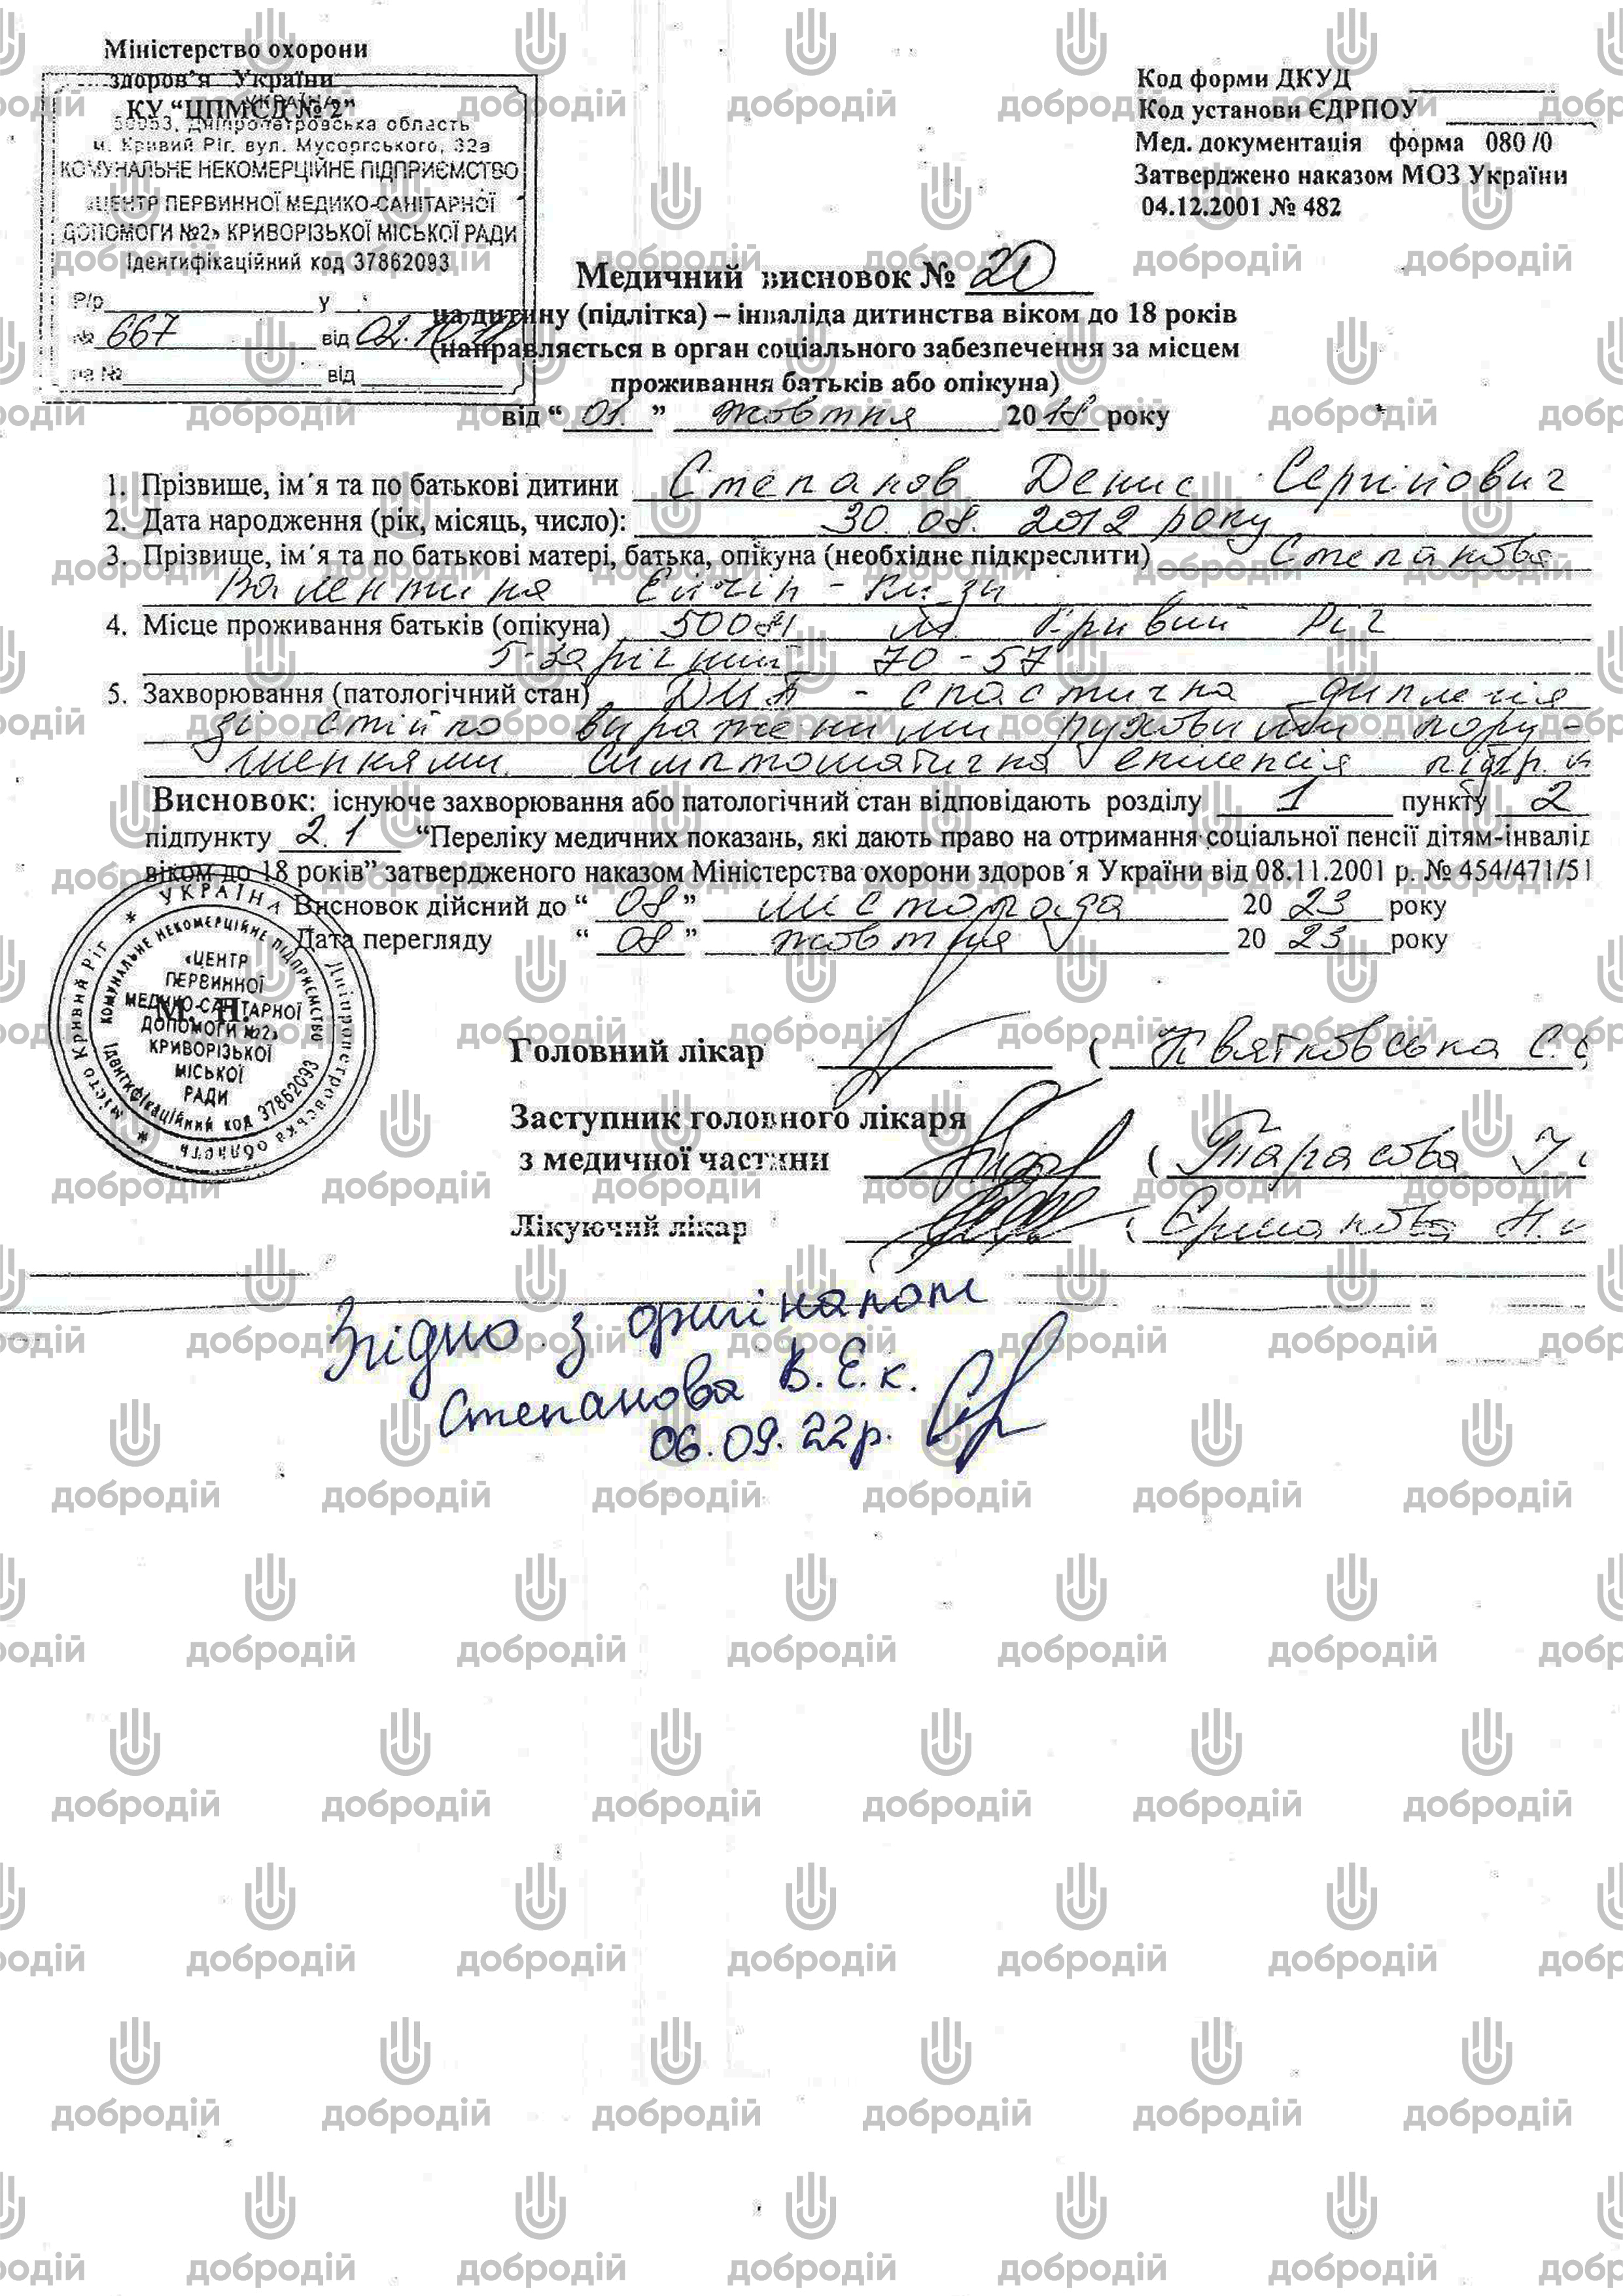 Міністерство охорони
здоров'я України
КУ “ЦПМСД № 2”
УКРАЇНА
50053, Дніпропетровська область
м. Кривий Ріг. вул. Мусоргського, 32а
КОМУНАЛЬНЕ НЕКОМЕРЦІЙНЕ ПІДПРИЄМСТВО
«ЦЕНТР ПЕРВИННОЇ МЕДИКО-САНІТАРНОЇ
ДОПОМОГИ №2» КРИВОРІЗЬКОЇ МІСЬКОЇ РАДИ
Ідентифікаційний код 37862093
Р/р у
№ 667 від 02.10.18
на № від
Код форми ДКУД
Код установи ЄДРПОУ
Мед. документація форма 080 /0
Затверджено наказом МОЗ України
04.12.2001 № 482
Медичний висновок № 20
на дитину (підлітка) – інваліда дитинства віком до 18 років
(направляється в орган соціального забезпечення за місцем
проживання батьків або опікуна)
від “ 01. ” жовтня 2018 року
1. Прізвище, ім´я та по батькові дитини Степанов Денис Сергійович
2. Дата народження (рік, місяць, число): 30. 08. 2012 року
3. Прізвище, ім´я та по батькові матері, батька, опікуна (необхідне підкреслити) Степанова
Валентина Ейчін - Кизи
4. Місце проживання батьків (опікуна) м Кривий Ріг
5-Зарічний 70 - 57
5. Захворювання (патологічний стан) ДЦП - спастична диплегія
зі стійко вираженими руховими пору -
шеннями. Симптоматична епілепсія
Висновок: існуюче захворювання або патологічний стан відповідають розділу 1 пункту 2
підпункту 2. 1 “Переліку медичних показань, які дають право на отримання соціальної пенсії дітям-інвалід
віком до 18 років” затвердженого наказом Міністерства охорони здоров´я України від 08.11.2001 р. № 454/471/51
Висновок дійсний до “ 08 ” листопада 20 23 року
Дата перегляду “ 08 ” жовтня 20 23 року
* УКРАЇНА * Дніпропетровська область * місто Кривий Ріг
КОМУНАЛЬНЕ НЕКОМЕРЦІЙНЕ ПІДПРИЄМСТВО
Ідентифікаційний код 37862093
«ЦЕНТР
ПЕРВИННОЇ
МЕДИКО-САНІТАРНОЇ
ДОПОМОГИ №2»
КРИВОРІЗЬКОЇ
МІСЬКОЇ
РАДИ
М. П.
Головний лікар ( Квятковська С.
Заступник головного лікаря
з медичної частини ( Тарасова
Лікуючий лікар ( Єрмакова Н.
Згідно з оригіналом
Степанова В.Е.к.
06.09.22р.
добродій